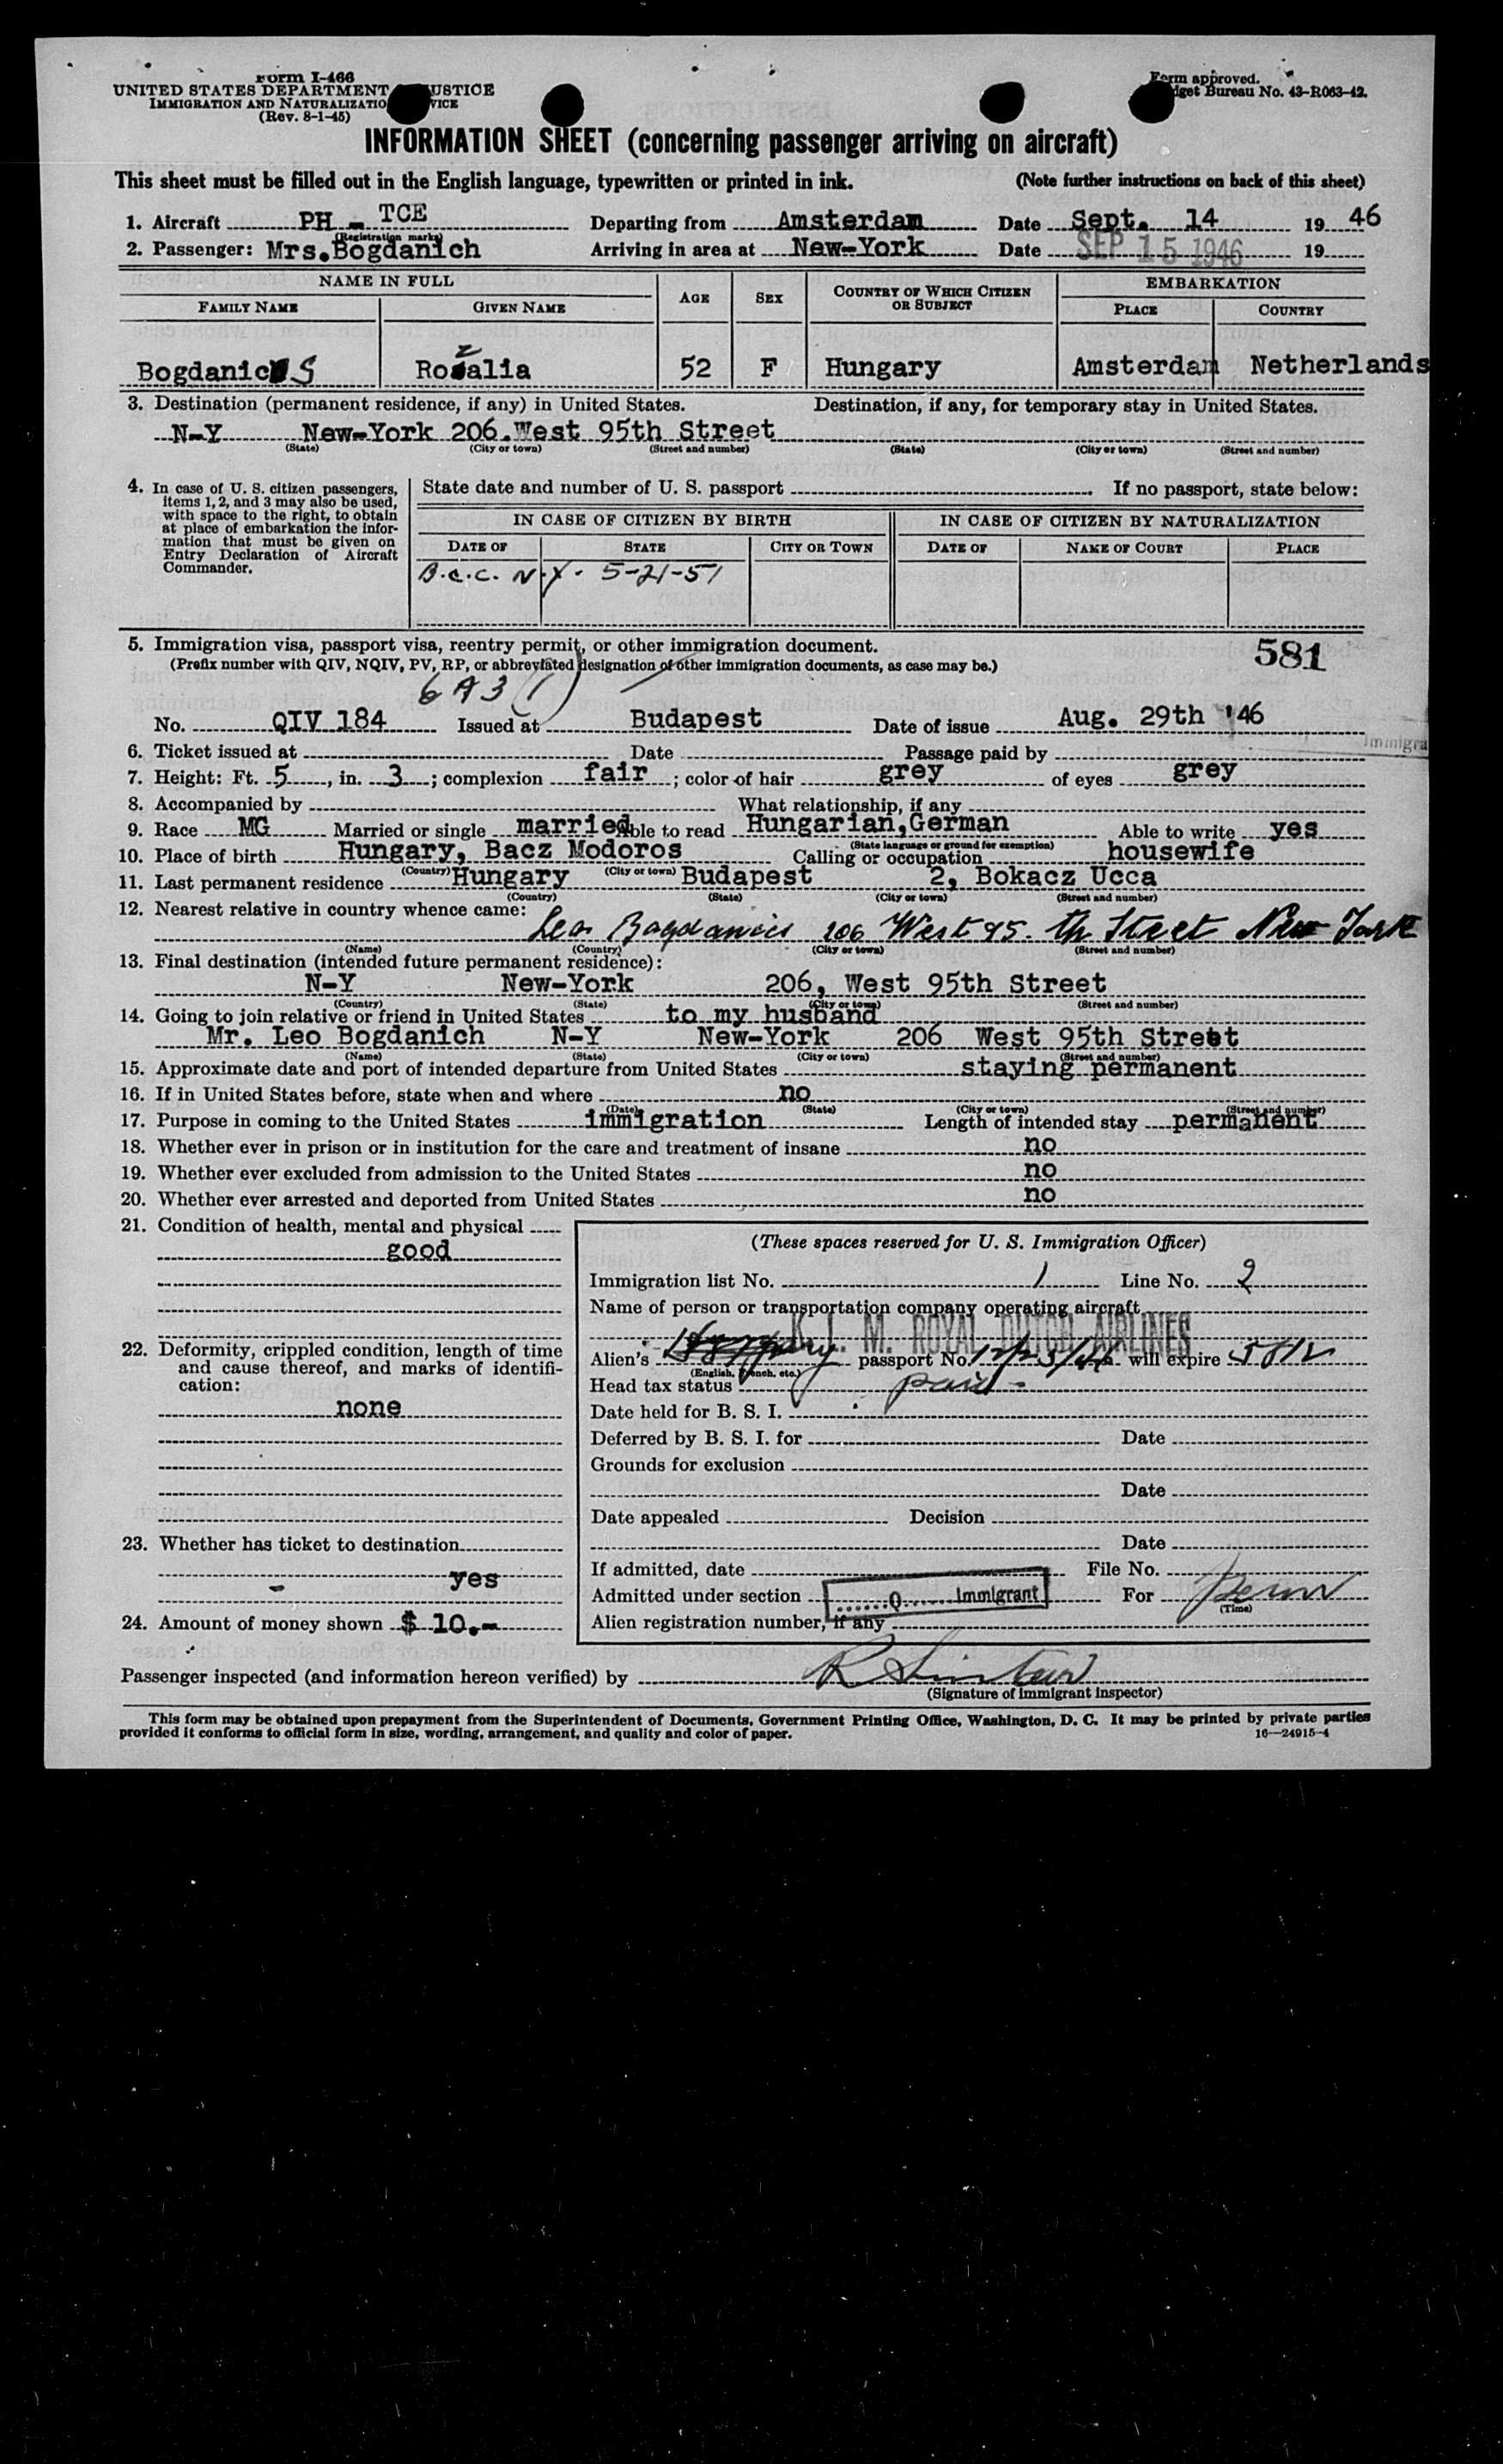 Form I-466
UNITED STATES DEPARTMENT USTICE
IMMIGRATION AND NATURALIZATIO VICE
(Rev. 8-1-45)
Form approved.
dget Bureau No. 43-R063-42.
INFORMATION SHEET (concerning passenger arriving on aircraft)
This sheet must be filled out in the English language, typewritten or printed in ink. (Note further instructions on back of this sheet)
1. Aircraft PH - TCE Departing from Amsterdam Date Sept. 14 19 46
(Registration marks)
2. Passenger: Mrs.Bogdanich Arriving in area at New-York Date SEP 15 1946 19
NAME IN FULL AGE SEX COUNTRY OF WHICH CITIZEN OR SUBJECT EMBARKATION
FAMILY NAME GIVEN NAME PLACE COUNTRY
Bogdanics Rozalia 52 F Hungary Amsterdam Netherlands
3. Destination (permanent residence, if any) in United States. Destination, if any, for temporary stay in United States.
N-Y New-York 206.West 95th Street
(State) (City or town) (Street and number) (State) (City or town) (Street and number)
4. In case of U. S. citizen passengers, items 1, 2, and 3 may also be used, with space to the right, to obtain at place of embarkation the information that must be given on Entry Declaration of Aircraft Commander.
State date and number of U. S. passport If no passport, state below:
IN CASE OF CITIZEN BY BIRTH IN CASE OF CITIZEN BY NATURALIZATION
DATE OF STATE CITY OR TOWN DATE OF NAME OF COURT PLACE
B.C.C. N.Y. 5-21-51
5. Immigration visa, passport visa, reentry permit, or other immigration document. 581
(Prefix number with QIV, NQIV, PV, RP, or abbreviated designation of other immigration documents, as case may be.)
6 A 3 (1)
No. QIV 184 Issued at Budapest Date of issue Aug. 29th '46
Immigra
6. Ticket issued at Date Passage paid by
7. Height: Ft. 5, in. 3; complexion fair; color of hair grey of eyes grey
8. Accompanied by What relationship, if any
9. Race MG Married or single married Able to read Hungarian,German Able to write yes
(State language or ground for exemption)
10. Place of birth Hungary, Bacz Modoros Calling or occupation housewife
(Country) (City or town)
11. Last permanent residence Hungary Budapest 2, Bokacz Ucca
(Country) (State) (City or town) (Street and number)
12. Nearest relative in country whence came:
Leo Bogdanics 206 West 95. th Street New York
(Name) (Country) (City or town) (Street and number)
13. Final destination (intended future permanent residence):
N-Y New-York 206, West 95th Street
(Country) (State) (City or town) (Street and number)
14. Going to join relative or friend in United States to my husband
Mr. Leo Bogdanich N-Y New-York 206 West 95th Street
(Name) (State) (City or town) (Street and number)
15. Approximate date and port of intended departure from United States staying permanent
16. If in United States before, state when and where no
(Date) (State) (City or town) (Street and number)
17. Purpose in coming to the United States immigration Length of intended stay permanent
18. Whether ever in prison or in institution for the care and treatment of insane no
19. Whether ever excluded from admission to the United States no
20. Whether ever arrested and deported from United States no
21. Condition of health, mental and physical
good
22. Deformity, crippled condition, length of time and cause thereof, and marks of identification:
none
23. Whether has ticket to destination
- yes
24. Amount of money shown $ 10.-
(These spaces reserved for U. S. Immigration Officer)
Immigration list No. 1 Line No. 2
Name of person or transportation company operating aircraft
K. L. M. ROYAL DUTCH AIRLINES
Alien's Hungary passport No. will expire
(English, French, etc.)
Head tax status paid -
Date held for B. S. I.
Deferred by B. S. I. for Date
Grounds for exclusion
Date
Date appealed Decision
Date
If admitted, date File No.
Admitted under section Q Immigrant For Perm
(Time)
Alien registration number, if any
Passenger inspected (and information hereon verified) by
(Signature of immigrant inspector)
This form may be obtained upon prepayment from the Superintendent of Documents, Government Printing Office, Washington, D. C. It may be printed by private parties
provided it conforms to official form in size, wording, arrangement, and quality and color of paper. 16—24915-4